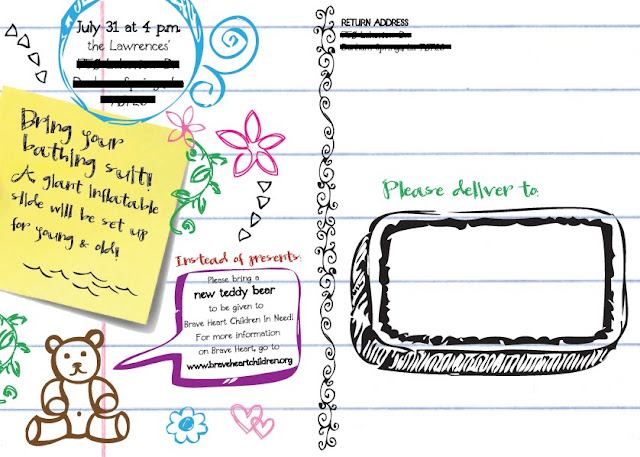 July 31 at 4 p.m.
the Lawrences'
Bring your
bathing suit!
A giant inflatable
slide will be set up
for young & old!
Instead of presents:
Please bring a
new teddy bear
to be given to
Brave Heart Children In Need!
For more information
on Brave Heart, go to
www.braveheartchildren.org
RETURN ADDRESS
Please deliver to: